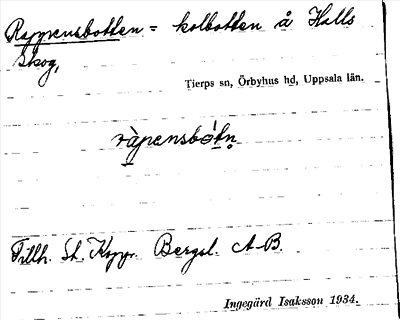 Rappensbotten = kolbotten å Halls
skog,
Tierps sn, Örbyhus hd, Uppsala län.
ràpensbótn̥
Tillh. St. Koppr. Bergsl. A-B.
Ingegärd Isaksson 1934.